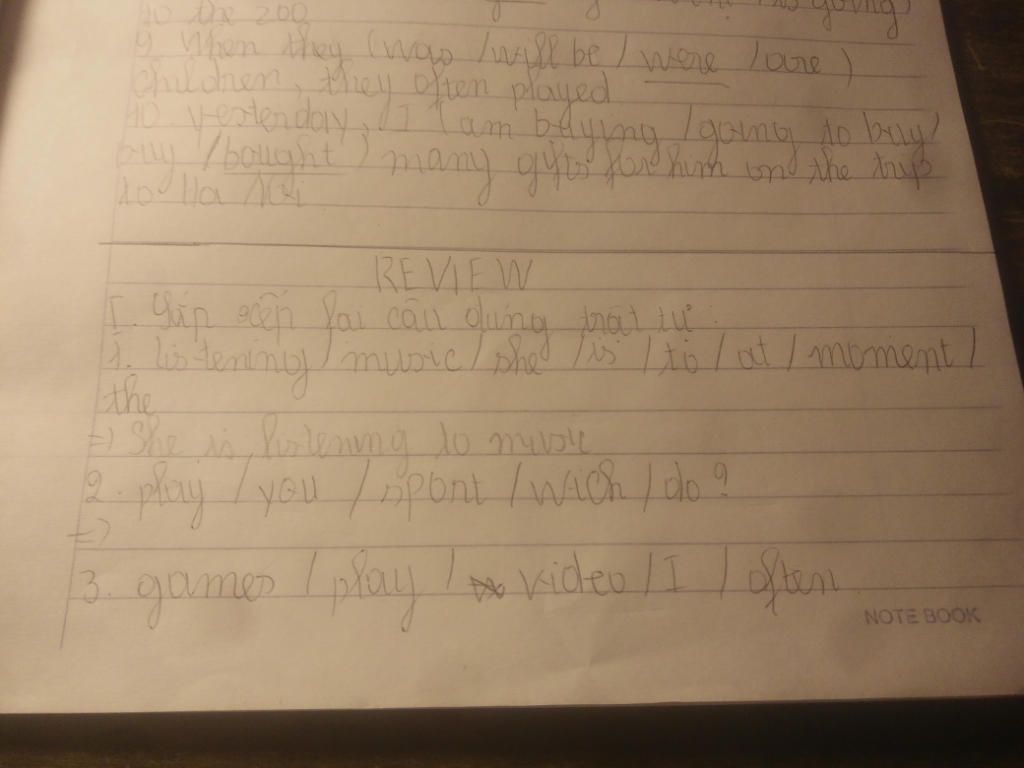 to the zoo
9 When they (was /will be / were /are)
children, they often played
10. yesterday, I (am buying /going to buy/
buy /bought) many gifts for him on the trip
to Ha Nội
REVIEW
I. Sắp xếp lại câu đúng trật tự.
1. listening / music / she / is / to / at / moment /
the
=) She is listening to music
2. play / you / sport / wich / do ?
=)
3. games / play / video / I / often
NOTE BOOK